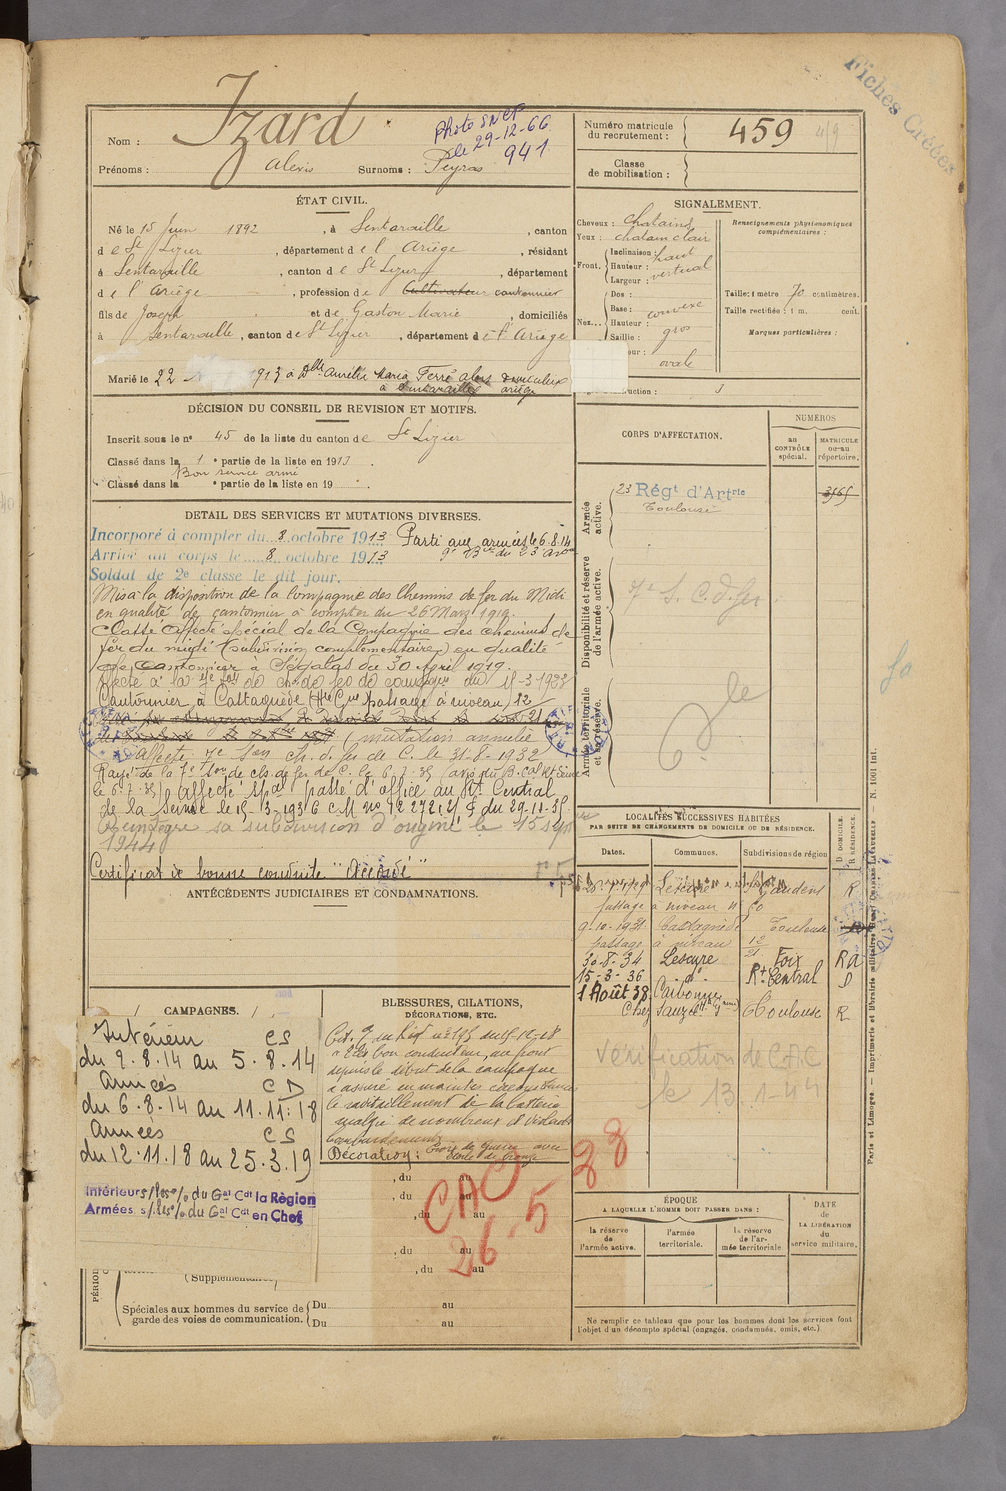 Fiches Créées
Nom : Izard
Photo SNCF
le 29-12-66
941
Prénoms : Alexis Surnoms : Peyras
Numéro matricule
du recrutement : 459
Classe
de mobilisation :
ÉTAT CIVIL.
Né le 15 Juin 1892, à Sentaraille, canton
de St Lizier, département de l'Ariège, résidant
à Sentaraille, canton de St Lizier, département
de l'Ariège, profession de Cultivateur cantonnier
fils de Joseph et de Gaston Marie, domiciliés
à Sentaraille, canton de St Lizier, département de l'Ariège
Marié le 22 1913 à Dlle Aurélie Maria Ferré
à Sentaraille Ariège
SIGNALEMENT.
Cheveux : chatains
Yeux : chatain clair
Front. Inclinaison : haut
Hauteur : vertical
Largeur :
Nez... Dos :
Base : convexe
Hauteur :
Saillie : gros
ovale
Renseignements physionomiques
complémentaires :
Taille : 1 mètre 70 centimètres.
Taille rectifiée : 1 m. cent.
Marques particulières :
ction : 3
DÉCISION DU CONSEIL DE REVISION ET MOTIFS.
Inscrit sous le n° 45 de la liste du canton de St Lizier
Classé dans la 1e partie de la liste en 1913.
Bon service armé
Classé dans la e partie de la liste en 19
CORPS D'AFFECTATION.
NUMÉROS
au
CONTRÔLE
spécial.
MATRICULE
ou au
répertoire.
Armée
active.
23 Régt d'Artrie
Toulouse
3565
Disponibilité et réserve
de l'armée active.
7e S. C. d. fer
Armée territoriale
et sa réserve.
DETAIL DES SERVICES ET MUTATIONS DIVERSES.
Incorporé à compter du 8 octobre 1913 Parti aux armées le 6.8.14
Arrivé au corps le 8 octobre 1913
Soldat de 2e classe le dit jour.
Mis à la disposition de la Compagnie des Chemins de fer du Midi
en qualité de cantonnier à compter du 26 Mars 1919.
Classé affecté spécial de la Compagnie des chemins de
fer du midi (subdivision complémentaire) en qualité
de Cantonnier à Ségalas du 30 April 1919.
Cantonnier à Castagnède (Hte Gne passage à niveau 12
(mutation annulée
Affecté 7e Son Ch. d. fer de C. le 31-8-1932
Rayé de la 7e Son de ch. de fer de C. le 6.7.35
le 6.7.35) Affecté spal passé d'office au Rt Central
de la Seine le 15.3.1936
Réintègre sa subdivision d'origine le 15 sept
1944
Certificat de bonne conduite "Accordé"
ANTÉCÉDENTS JUDICIAIRES ET CONDAMNATIONS.
LOCALITÉS SUCCESSIVES HABITÉES
PAR SUITE DE CHANGEMENTS DE DOMICILE OU DE RÉSIDENCE.
Dates. Communes. Subdivisions de région
D. DOMICILE.
R. RÉSIDENCE.
Lescure St Gaudens R
passage à niveau n° 50
9-10-1921 Castagnède Toulouse
passage à niveau 12
30-8-34 Lescure Foix Ra
15-3-36 -d°- Rt Central D
1 Août 38 Carbonne Toulouse R
Vérification de CAC
le 13.1-44
28
CAMPAGNES.
Intérieur CS
du 2.8.14 au 5.8.14
Armées CD
du 6.8.14 au 11.11.18
Armées CS
du 12.11.18 au 25.3.19
Intérieur s/Réson du Gal Cdt la Région
Armées s/Réson du Gal Cdt en Chef
BLESSURES, CITATIONS,
DÉCORATIONS, ETC.
Cité
très bon conducteur, au front
depuis le début de la campagne
a assuré en maintes circonstances
le ravitaillement de la batterie
malgré de nombreux et violents
bombardements
Décoration : Croix de Guerre avec
étoile de bronze
, du au
, du au
, du au
, du au
, du au
CAC
26-5
(Supplémentaires
Spéciales aux hommes du service de
garde des voies de communication.
Du au
Du au
ÉPOQUE
A LAQUELLE L'HOMME DOIT PASSER DANS :
la réserve
de
l'armée active.
l'armée
territoriale.
la réserve
de l'ar-
mée territoriale.
DATE
de
LA LIBÉRATION
du
service militaire.
Ne remplir ce tableau que pour les hommes dont les services font
l'objet d'un décompte spécial (engagés, condamnés, omis, etc.)
Paris et Limoges. — Imprimerie et librairie militaires Henri CHARLES-LAVAUZELLE. — N. 1001 Int.